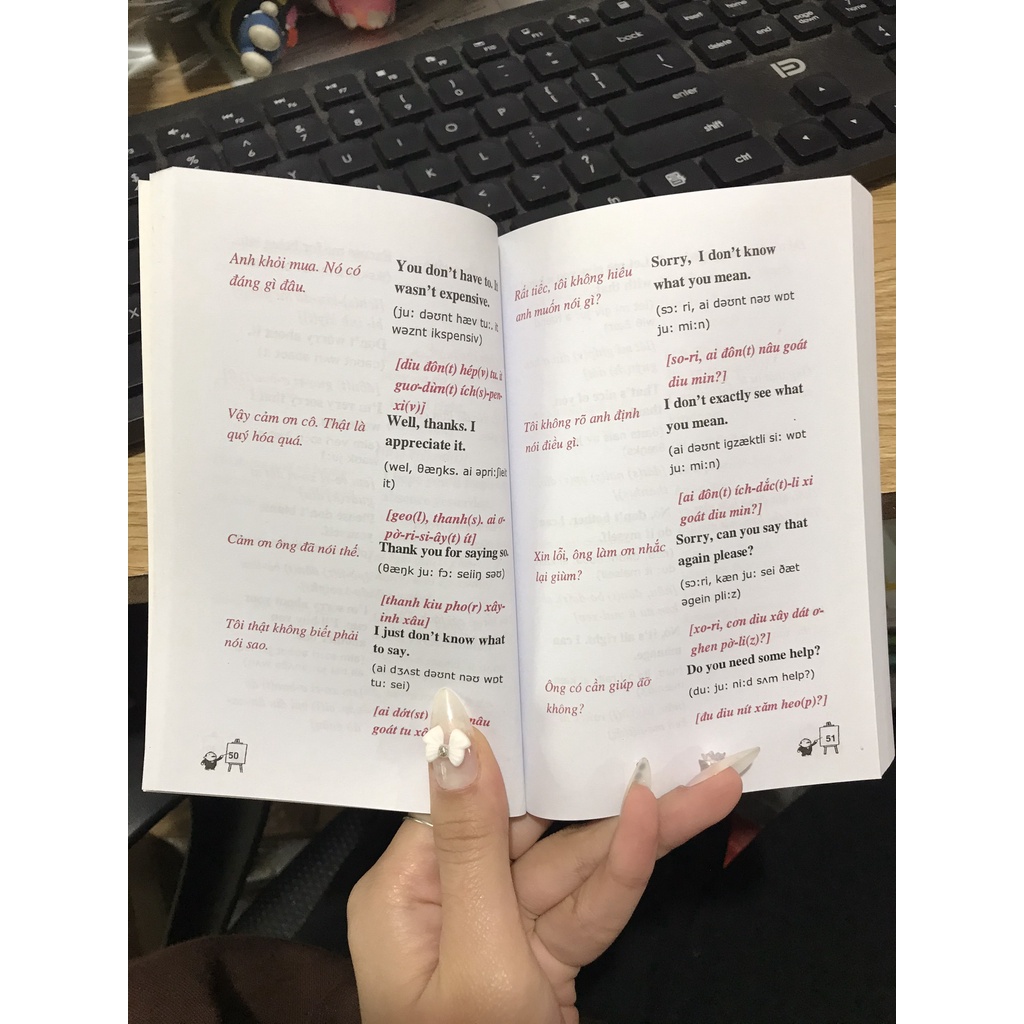 Anh khỏi mua. Nó có
đáng gì đâu.
You don't have to. It
wasn't expensive.
(ju: dəʊnt hæv tu:. it
wəznt ikspensiv)
[diu đôn(t) hép(v) tu. it
guơ-dừn(t) ích(s)-pen-
xi(v)]
Vậy cảm ơn cô. Thật là
quý hóa quá.
Well, thanks. I
appreciate it.
(wel, θæŋks. ai əpri:ʃieit
it)
[geo(l), thanh(s). ai ơ-
pờ-ri-si-ây(t) ít]
Cảm ơn ông đã nói thế.
Thank you for saying so.
(θæŋk ju: fɔ: seiiŋ səʊ)
[thanh kiu pho(r) xây-
inh xâu]
Tôi thật không biết phải
nói sao.
I just don't know what
to say.
(ai dʒʌst dəʊnt nəʊ wɒt
tu: sei)
[ai dớt(st) nâu
goát tu
50
Rất tiếc, tôi không hiểu
anh muốn nói gì?
Sorry, I don't know
what you mean.
(sɔ: ri, ai dəʊnt nəʊ wɒt
ju: mi:n)
[so-ri, ai đôn(t) nâu goát
diu min?]
Tôi không rõ anh định
nói điều gì.
I don't exactly see what
you mean.
(ai dəʊnt igzæktli si: wɒt
ju: mi:n)
[ai đôn(t) ích-dắc(t)-li xi
goát diu min?]
Xin lỗi, ông làm ơn nhắc
lại giùm?
Sorry, can you say that
again please?
(sɔ:ri, kæn ju: sei ðæt
əgein pli:z)
[xo-ri, cơn diu xây dát ơ-
ghen pờ-li(z)?]
Ông có cần giúp đỡ
không?
Do you need some help?
(du: ju: ni:d sʌm help?)
[đu diu nít xăm heo(p)?]
51
back
enter
shift
ctrl
fn
insert
delete
home
end
page
down
F4
F5
F6
F7
F8
F9
F10
F11
F12
U
I
O
P
K
L